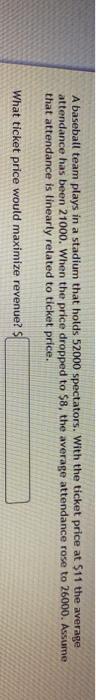 A baseball team plays in a stadium that holds 52000 spectators. With the ticket price at $11 the average
attendance has been 21000. When the price dropped to $8, the average attendance rose to 26000. Assume
that attendance is linearly related to ticket price.
What ticket price would maximize revenue? $